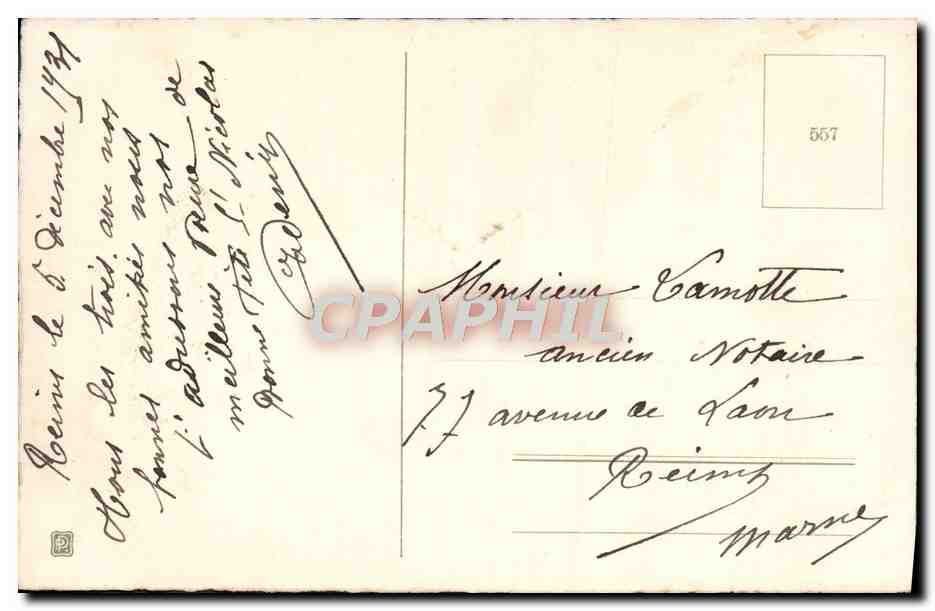 Reims le 5 décembre 1931
Nous les trois avec nos
bonnes amitiés nous
t'adressons nos
meilleurs vœux de
Bonne Fête St Nicolas
557
CPAPHIL
Monsieur Lamotte
ancien Notaire
77 avenue de Laon
Reims
Marne